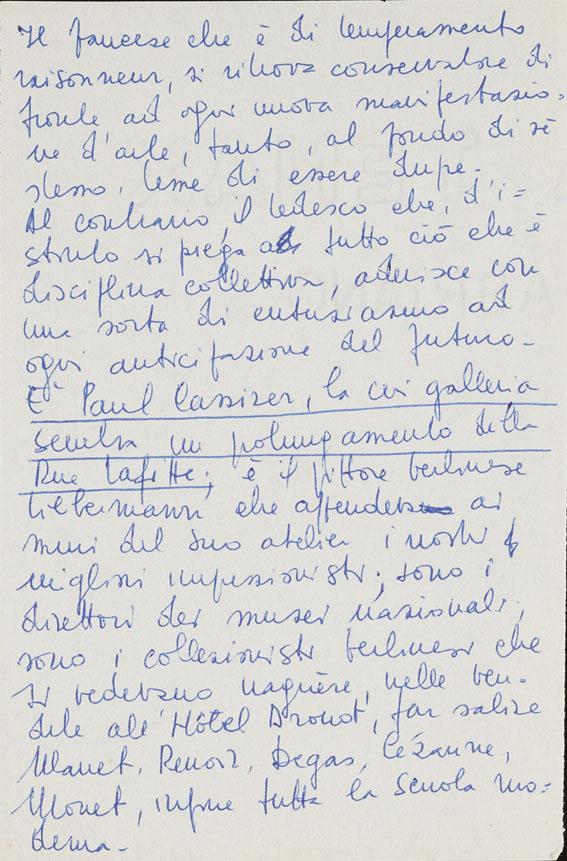 Il francese che è di temperamento
raisonneur, si ritrova conservatore di
fronte ad ogni nuova manifestazio=
ne d'arte, tanto, al fondo di sè
stesso, teme di essere dupe.
Al contrario il tedesco che, d'i=
stinto si piega a tutto ciò che è
disciplina collettiva, aderisce con
una sorta di entusiasmo ad
ogni anticipazione del futuro-
E' Paul Cassirer, la cui galleria
sembra un prolungamento della
Rue Lafitte; è il pittore berlinese
Liebermann che appendeva ai
muri del suo atelier i nostri
migliori impressionisti; sono i
direttori dei musei nazionali,
sono i collezionisti berlinesi che
si vedevano naguère, nelle ven-
dite all'Hôtel Drouot, far salire
Manet, Renoir, Degas, Cézanne,
Monet, infine tutta la scuola mo=
derna-